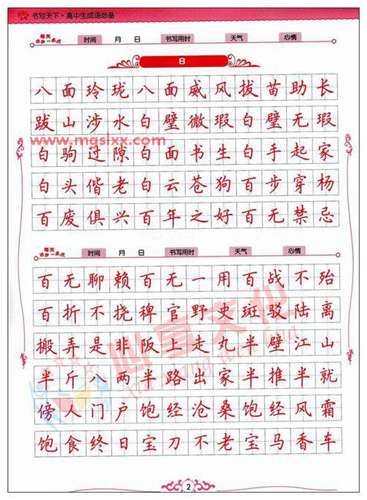 书写天下·高中生成语必备
每天
进步一点点
时间 月 日 书写用时 天气 心情
B
八面玲珑八面威风拔苗助长
跋山涉水白璧微瑕白璧无瑕
白驹过隙白面书生白手起家
www.mqslxx.com
白头偕老白云苍狗百步穿杨
百废俱兴百年之好百无禁忌
每天
进步一点点
时间 月 日 书写用时 天气 心情
百无聊赖百无一用百战不殆
百折不挠稗官野史斑驳陆离
搬弄是非阪上走丸半壁江山
半斤八两半路出家半推半就
傍人门户饱经沧桑饱经风霜
饱食终日宝刀不老宝马香车
2